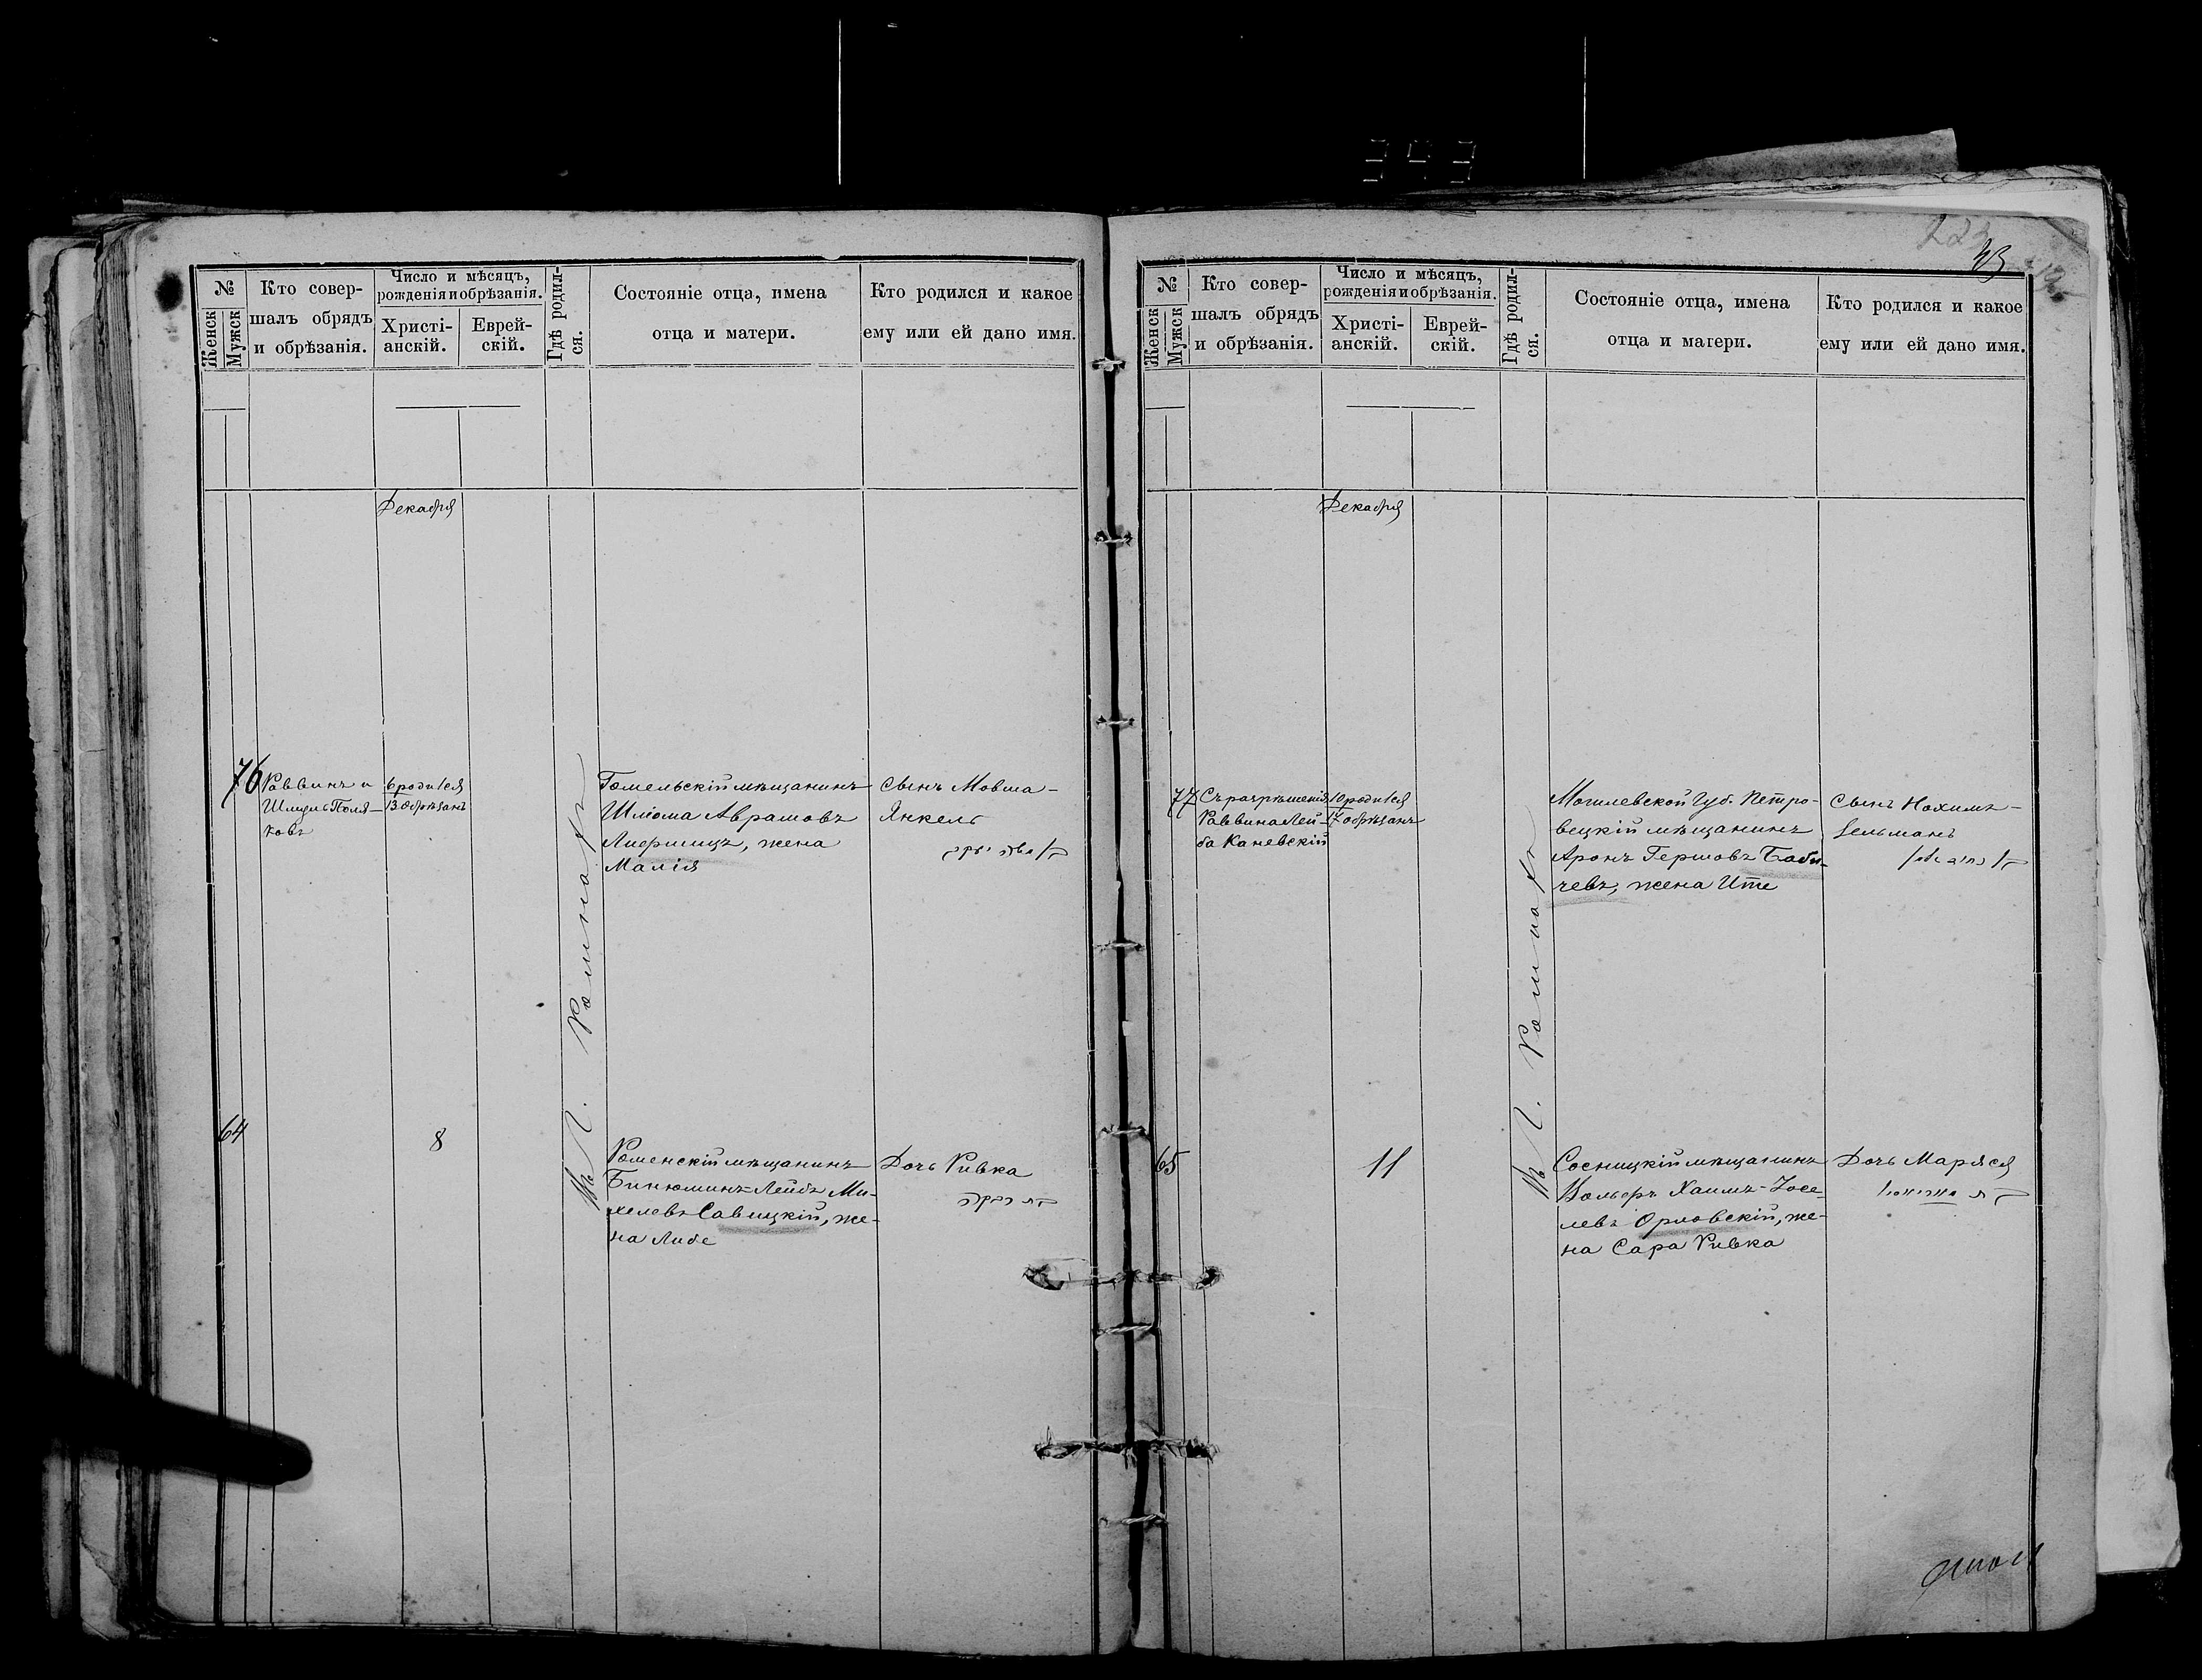 343
223
43
№
Женск
Мужск
Кто совер-
шалъ обрядъ
и обрѣзанія.
Число и мѣсяцъ,
рожденія и обрѣзанія.
Христі-
анскій.
Еврей-
скій.
Гдѣ родил-
ся.
Состояніе отца, имена
отца и матери.
Кто родился и какое
ему или ей дано имя.
Декабря
76
Раввинъ и
Шмуль Поля-
ковъ
6 родился
13 обрѣзанъ
Въ г. Ромнахъ
Гомельскій мѣщанинъ
Шліома Аврамовъ
Лифшицъ, жена
Малія
Сынъ Мовша-
Янкель
64
8
Роменскій мѣщанинъ
Бинюминъ-Лейбъ Ми-
хелевъ Савицкій, же-
на Либе
Дочь Ривка
№
Женск
Мужск
Кто совер-
шалъ обрядъ
и обрѣзанія.
Число и мѣсяцъ,
рожденія и обрѣзанія.
Христі-
анскій.
Еврей-
скій.
Гдѣ родил-
ся.
Состояніе отца, имена
отца и матери.
Кто родился и какое
ему или ей дано имя.
Декабря
77
Съ разрѣшенія
Раввина Лей-
ба Каневскій
10 родился
17 обрѣзанъ
Въ г. Ромнахъ
Могилевской Губ. Петро-
вецкій мѣщанинъ
Аронъ Гершовъ Баби-
чевъ, жена Ите
Сынъ Нохимъ-
Зельманъ
65
11
Сосницкій мѣщанинъ
Вольфъ Хаимъ-Іосе-
левъ Орловскій, же-
на Сара Ривка
Дочь Маряся